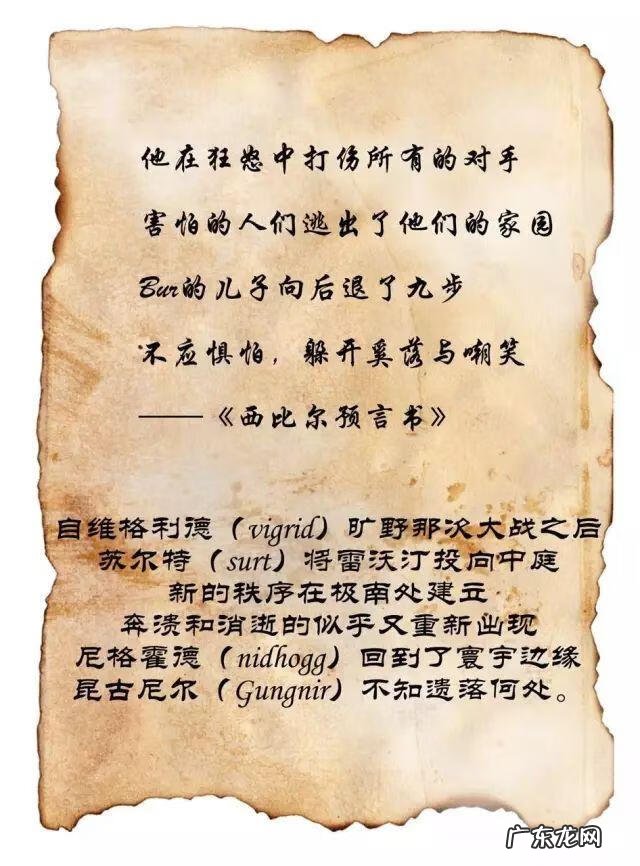 他在狂怒中打伤所有的对手
害怕的人们逃出了他们的家园
Bur的儿子向后退了九步
不应惧怕，躲开奚落与嘲笑
——《西比尔预言书》
自维格利德（vigrid）旷野那次大战之后
苏尔特（surt）将雷沃汀投向中庭
新的秩序在极南处建立
奔溃和消逝的似乎又重新出现
尼格霍德（nidhogg）回到了寰宇边缘
昆古尼尔（Gungnir）不知遗落何处。
广东龙网